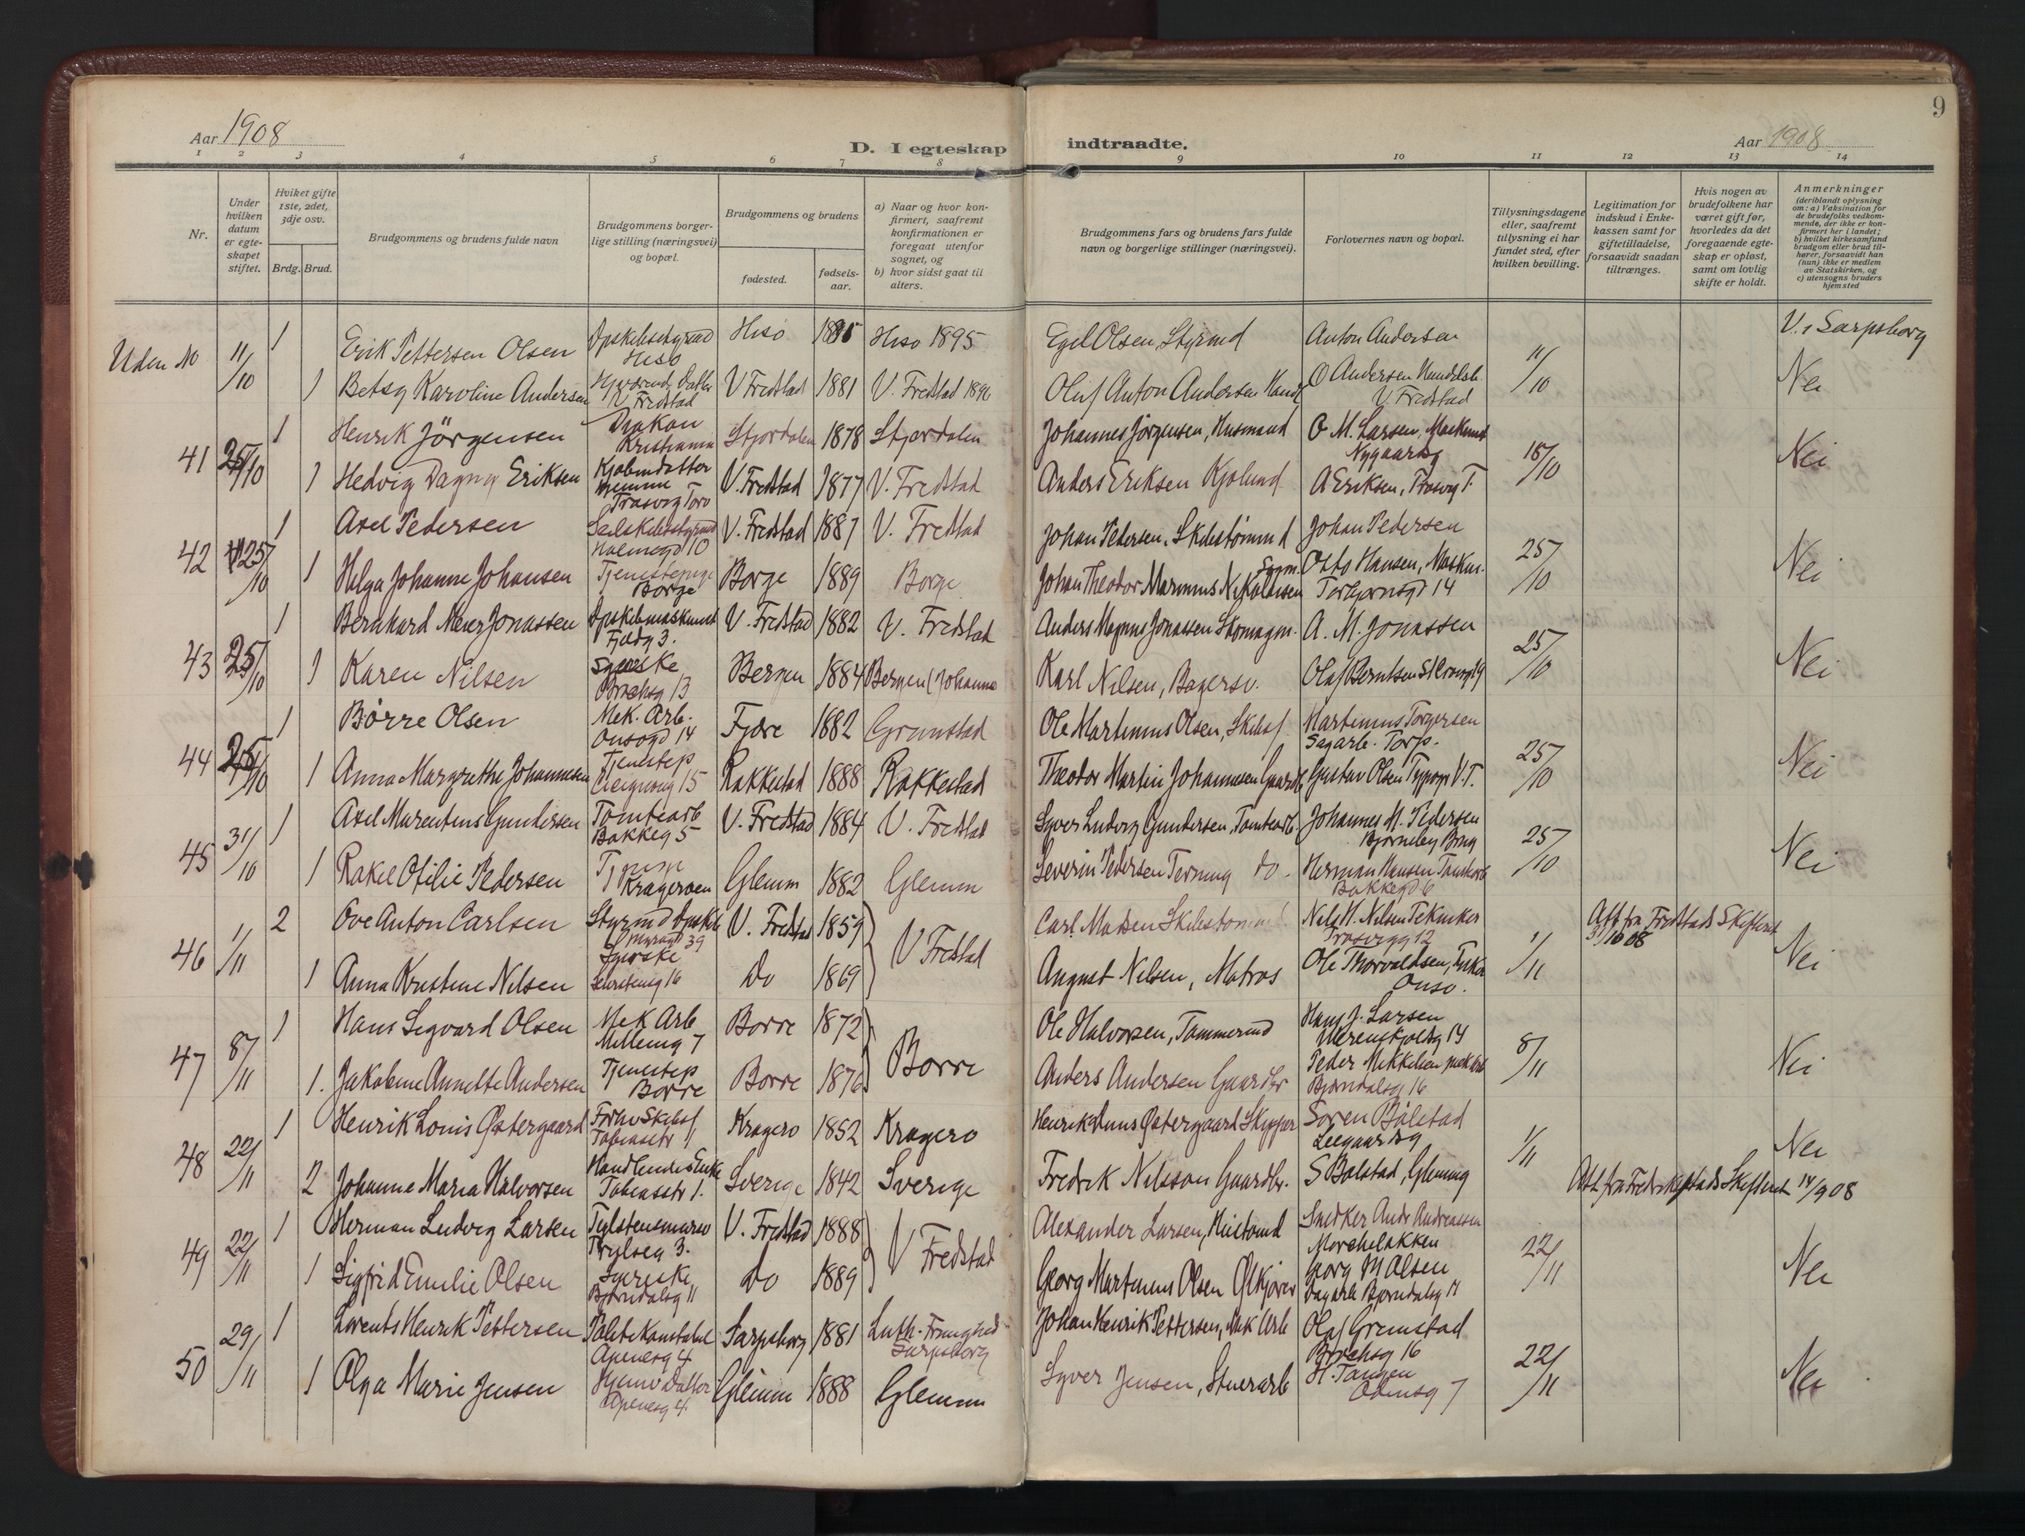 9
Aar 1908
D. I egteskap indtraadte.
Aar 1908
1 2 3 4 5 6 7 8 9 10 11 12 13 14
Nr.
Under hvilken datum er egteskapet stiftet.
Hviket gifte 1ste, 2det, 3dje osv.
Brdg. Brud.
Brudgommens og brudens fulde navn
Brudgommens borgerlige stilling (næringsvei) og bopæl.
Brudgommens og brudens
fødested.
fødselsaar.
a) Naar og hvor konfirmert, saafremt konfirmationen er foregaat utenfor sognet, og
b) hvor sidst gaat til alters.
Brudgommens fars og brudens fars fulde navn og borgerlige stillinger (næringsvei).
Forlovernes navn og bopæl.
Tillysningsdagene eller, saafremt tillysning ei har fundet sted, efter hvilken bevilling.
Legitimation for indskud i Enkekassen samt for giftetilladelse, forsaavidt saadan tiltrænges.
Hvis nogen av brudefolkene har været gift før, hvorledes da det foregaaende egteskap er opløst, samt om lovlig skifte er holdt.
Anmerkninger
(deriblandt oplysning om: a) Vaksination for de brudefolks vedkommende, der ikke er konfirmert her i landet; b) hvilket kirkesamfund brudgom eller brud tilhører, forsaavidt han (hun) ikke er medlem av Statskirken, og c) utensogns bruders hjemsted
Uden No 11/10 1 Erik Pettersen Olsen Hisø Hisø 1895 Egil Olsen, Styrmd Anton Andersen V. Sarpsborg
1 Betsy Karoline Andersen V Fredstad V Fredstad 1881 V. Fredstad 1896 Oluf Anton Andersen O Andersen V Fredstad 11/10 Nei
41 25/10 1 Henrik Jörgensen Diakon Kristiania Stjørdalen 1878 Stjørdalen Johannes Jørgensen, Husmand O. M. Larsen, Maskinist Nygaardsg
1 Hedvig Dagny Eriksen Hjemme Trosvig V. Fredstad 1877 V. Fredstad Anders Eriksen A Eriksen, Trosvig T. 18/10 Nei
42 25/10 1 Axel Pedersen V. Fredstad 1887 V. Fredstad Johan Pedersen, Skibstømmd Johan Pedersen
1 Helga Johanne Johansen Tjenestepige Borge Borge 1889 Borge Johan Theodor Marinius Nikolaisen Otto Hansen, Maskin. 14 25/10 Nei
43 25/10 1 Bernhard Meier Jonassen V. Fredstad 1882 V. Fredstad Anders Magnus Jonassen Skomagm. A. M. Jonassen
1 Karen Nilsen Syerske Brochsg 13 Bergen 1884 Bergen (Johannes Karl Nilsen, Bagersv. Olaf Berntsen 25/10 Nei
44 25/10 1 Børre Olsen Mek. Arb. Onsøgd 14 Fjære 1882 Grimstad Ole Martinius Olsen, Skibsf Martinius Torgersen Sagarb. Torp.
1 Anna Margrethe Johannesen Tjenstep 15 Rakkestad 1888 Rakkestad Theodor Martin Johannesen Gaardb Gustav Olsen Typogr V.T. 25/10 Nei
45 31/10 1 Axel Marentius Gundersen Tomtearb Bakkeg 5 V. Fredstad 1884 V. Fredstad Syver Ludvig Gundersen, Tomtearb. Johannes M. Pedersen Bjørneby Brug
1 Rakel Otilie Pedersen Kragerøen Glemm 1882 Glemm Severin Pedersen Terning do. Herman Hansen Tomtearb Bakkegd 6 25/10 Nei
46 1/11 2 Ove Anton Carlsen Styrmd Dpskib 39 V. Fredstad 1859 V Fredstad Carl Madsen Skibstømmd Nils H. Nilsen Tekniker Trosvigg 12 Att. fra Fredstads Skifteret 31/10 08
1 Anna Kristine Nilsen Syerske 16 Do 1869 August Nilsen, Matros Ole Thorvaldsen, Onsø. 1/11 Nei
47 8/11 1 Hans Sigvard Olsen Mek Arb 7 Borre 1872 Borre Ole Halvorsen, Tømmermd Hans J. Larsen Werenskjoldsg 14
1. Jakobine Annette Andersen Tjenestep Borre Borre 1876 Anders Andersen Gaardbr Peder Mikkelsen mek Arb Bjørndalsg 16 8/11 Nei
48 22/11 1 Henrik Louis Østergaard Forhv Skibsf Tobiasstr 1 Kragerø 1852 Kragerø Henrik Duus Østergaard Skipper Søren Bølstad Leegaardsg
2 Johanne Maria Halvorsen Handlende Enke Tobiasstr 1. Sverige 1842 Sverige Fredrik Nilsson Gaardbr. S Bolstad, Glemmg 1/11 Nei Att. fra Fredrikstads Skifteret 14/9 08
49 22/11 1 Herman Ludvig Larsen 3. V. Fredstad 1888 V Fredstad Alexander Larsen, Snedker Andr Andreassen
1 Sigfrid Emilie Olsen Syerske Bjørndalsg 11 Do 1889 Georg Martinius Olsen Ølkjører Georg M Olsen Bjørndalsg 11 22/11 Nei
50 29/11 1 Lorents Henrik Pettersen Politikonstabel Apenesg 4 Sarpsborg 1881 Luth. Frimghed Sarpsborg Johan Henrik Pettersen, Mek Arb Olaf Grimstad Brochsg 16
1 Olga Marie Jensen Hjemv Datter Apenesg 4. Glemm 1888 Glemm Syver Jensen, Stuerarb H. Tangen Odinsg 7 22/11 Nei